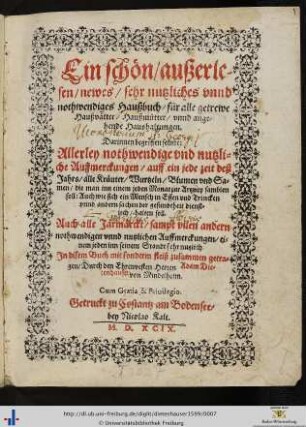 Ein schön/außerle-
sen/newes/sehr nutzliches vnnd
nothwendiges Haußbuch/für alle getrewe
Haußvätter/Haußmütter/vnnd ange-
hende Haushaltungen.
Darinnen begriffen seind:
Allerley nothwendige vnd nutzli-
che Auffmerckungen/auff ein jede zeit deß
Jahrs/alle Kräuter/Wurtzeln/Blumen vnd Sa-
men/die man inn einem jeden Monat zur Artzney samblen
soll: Auch wie sich ein Mensch in Essen vnd Trincken
vnnd andern sachen der gesundheit dienst-
lich/halten soll.
Auch alle Järmärckt/sampt vilen andern
nothwendigen vnnd nutzlichen Auffmerckungen/ei-
nem jeden inn seinem Standt sehr nutzlich
In disem Buch mit sonderm fleiß zusammen getra-
gen/Durch den Ehrnvesten Herren
von Mindelheim.
Cum Gratia & Privilegio.
Getruckt zu Costantz am Bodensee/
bey Nicolao Kalt.
M. D. XCIX.
http://dl.ub.uni-freiburg.de/diglit/dietershauser1599/0007
© Universitätsbibliothek Freiburg
Baden-Württemberg